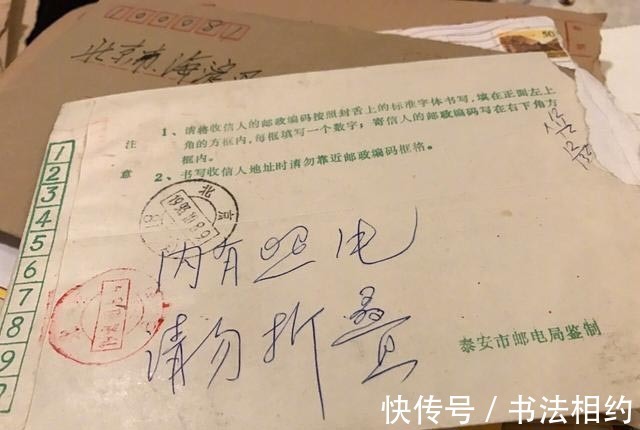 100081
北京市海淀
50
注意
1、请将收信人的邮政编码按照封舌上的标准字体书写,填在正面左上
角的方框内。每框填写一个数字;寄信人的邮政编码写在右下角方
框内。
2、书写收信人地址时请勿靠近邮政编码框格。
1
2
3
4
5
6
7
8
9
北京
内有照片
请勿折叠
泰安市邮电局鉴制
快传号/书法相约